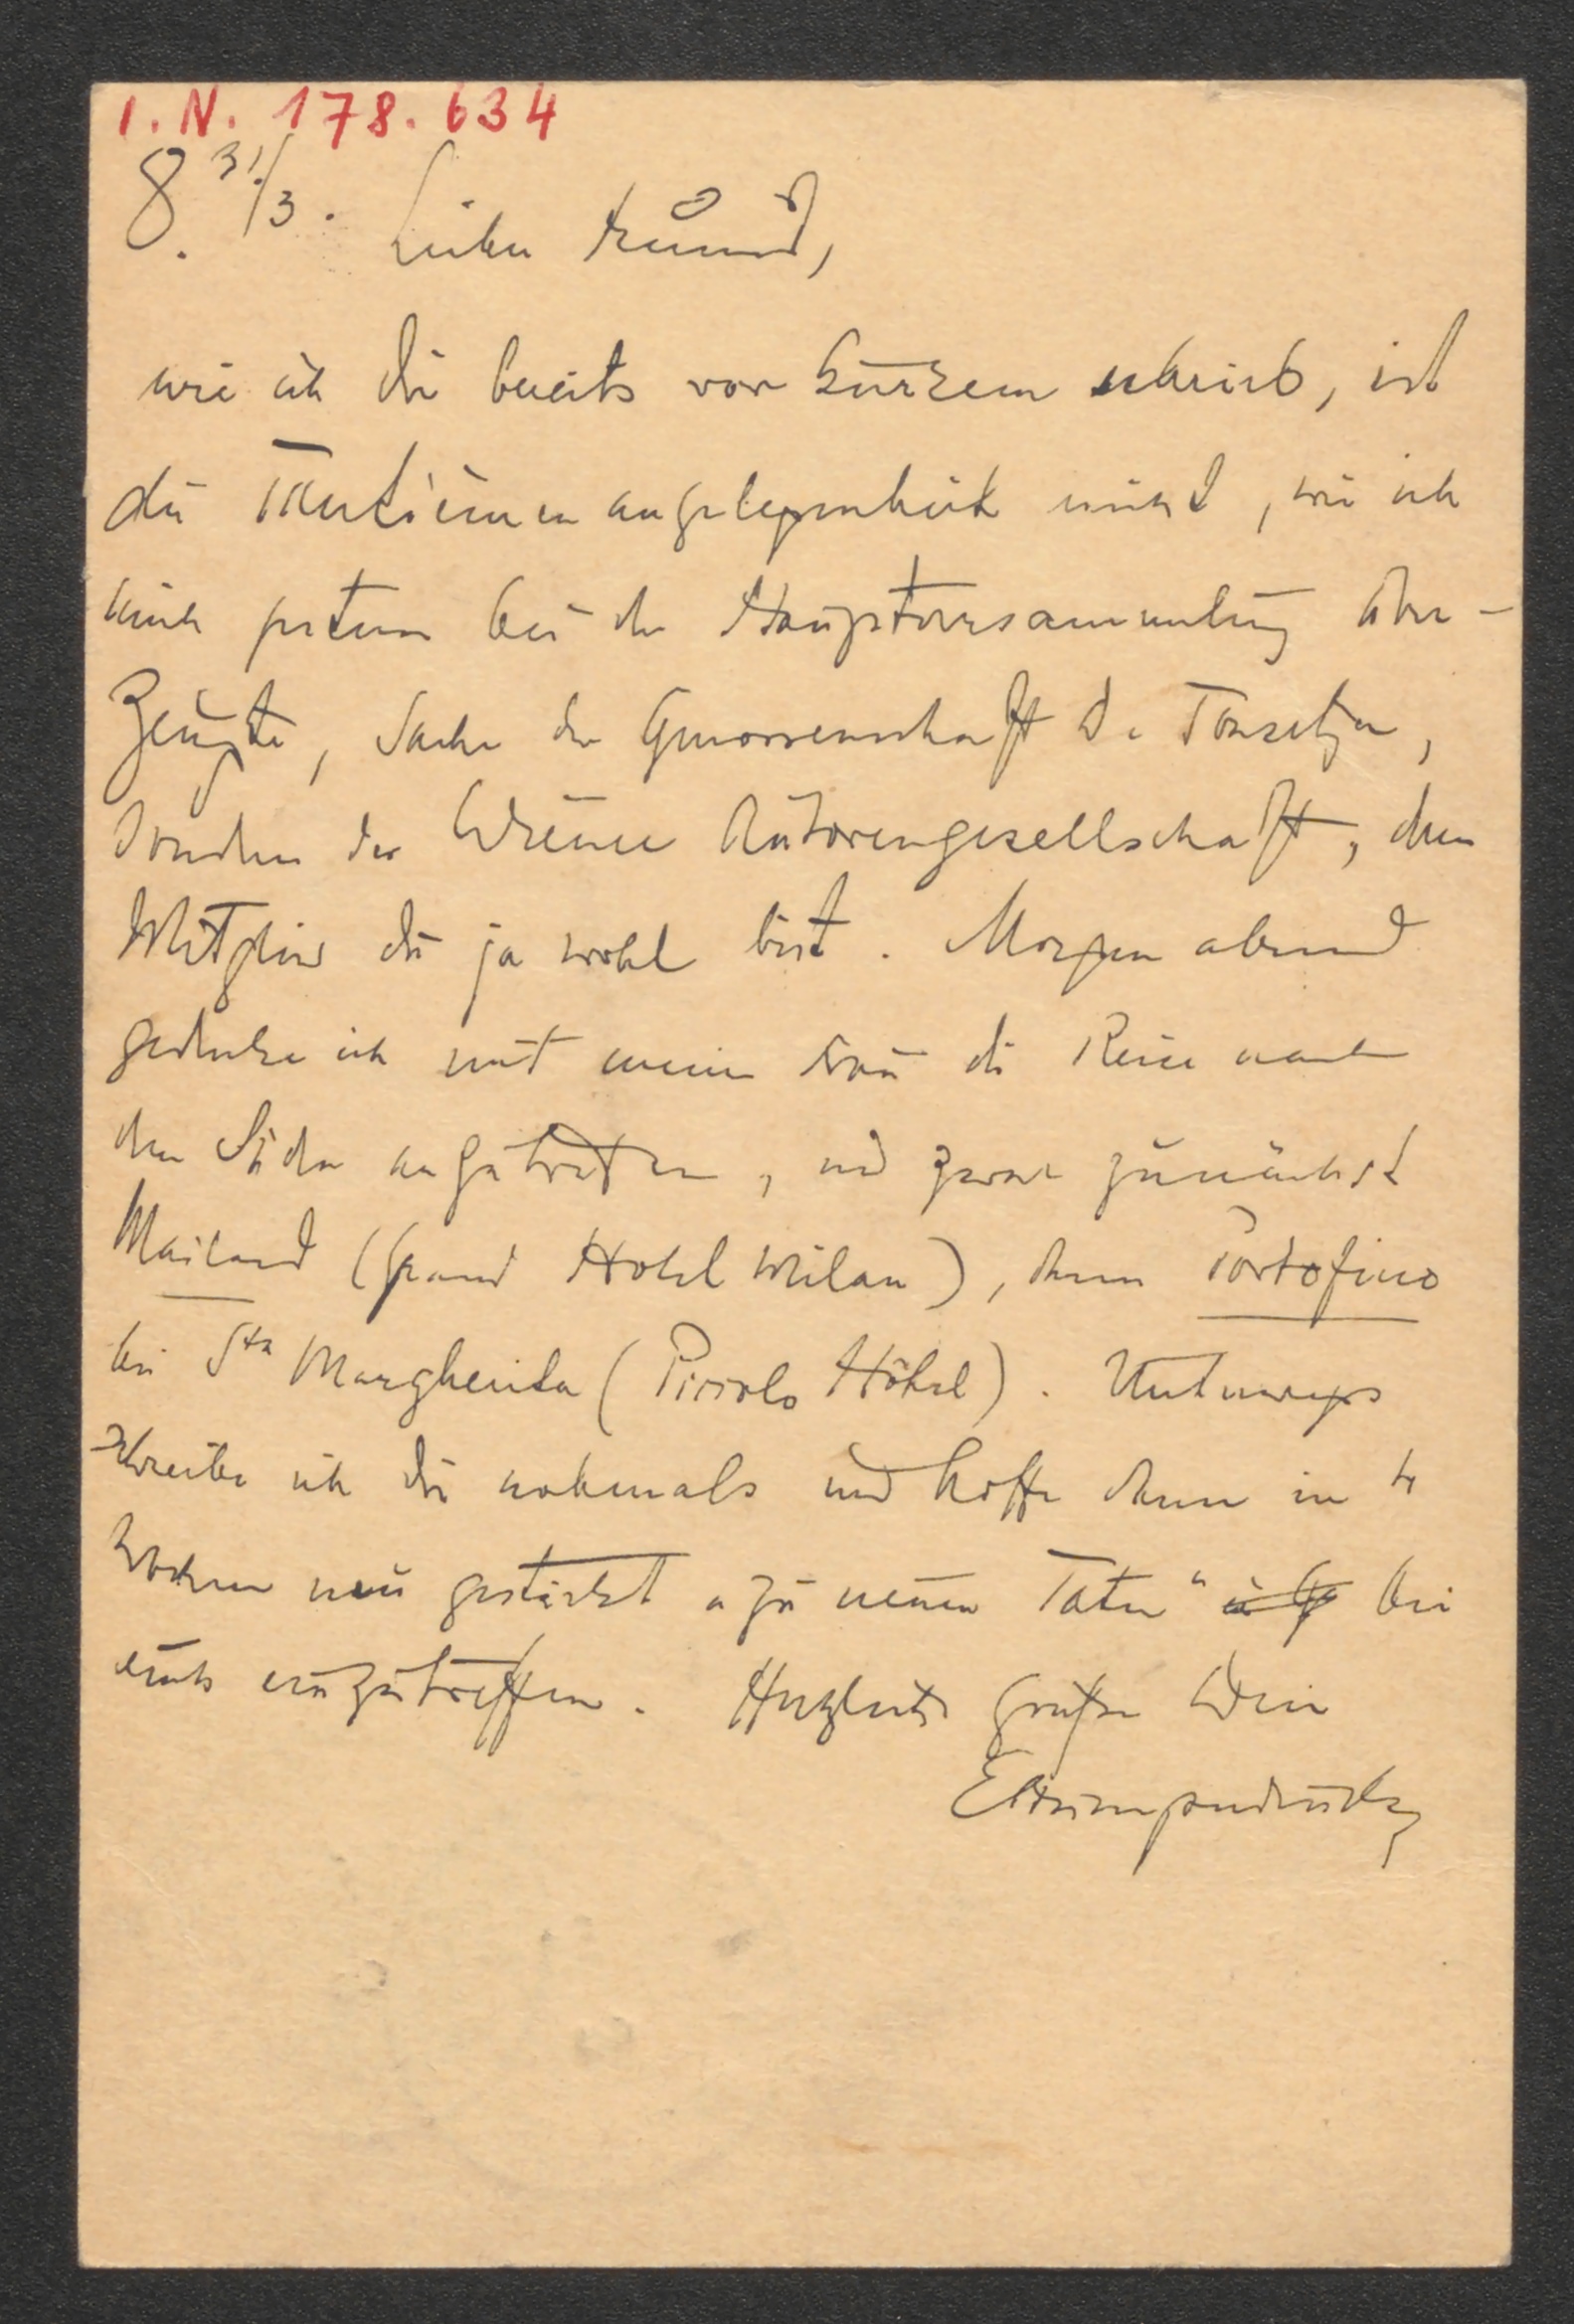 I.N. 178.634
B. 31/3. Lieber Freund,
wie ich dir bereits vor kurzem schrieb, ist
die Tantiemenangelegenheit nicht, wie ich
mich gestern bei der Hauptversammlung über-
zeugte, Sache der Genossenschaft D. Tonsetzer,
sondern der Wiener Autorengesellschaft, deren
Mitglied du ja wohl bist. Morgen abend
gedenke ich mit meiner Frau die Reise nach
dem Süden anzutreten, und zwar zunächst
Mailand (Grand Hotel Milan), dann Portofino
bei Sta Margherita (Piccolo Hôtel). Unterwegs
schreibe ich dir nochmals und hoffe dann in 4
Wochen neu gestärkt "zu neuen Taten" bei
euch einzutreffen. Herzliche Grüße Dein
EHumperdinck